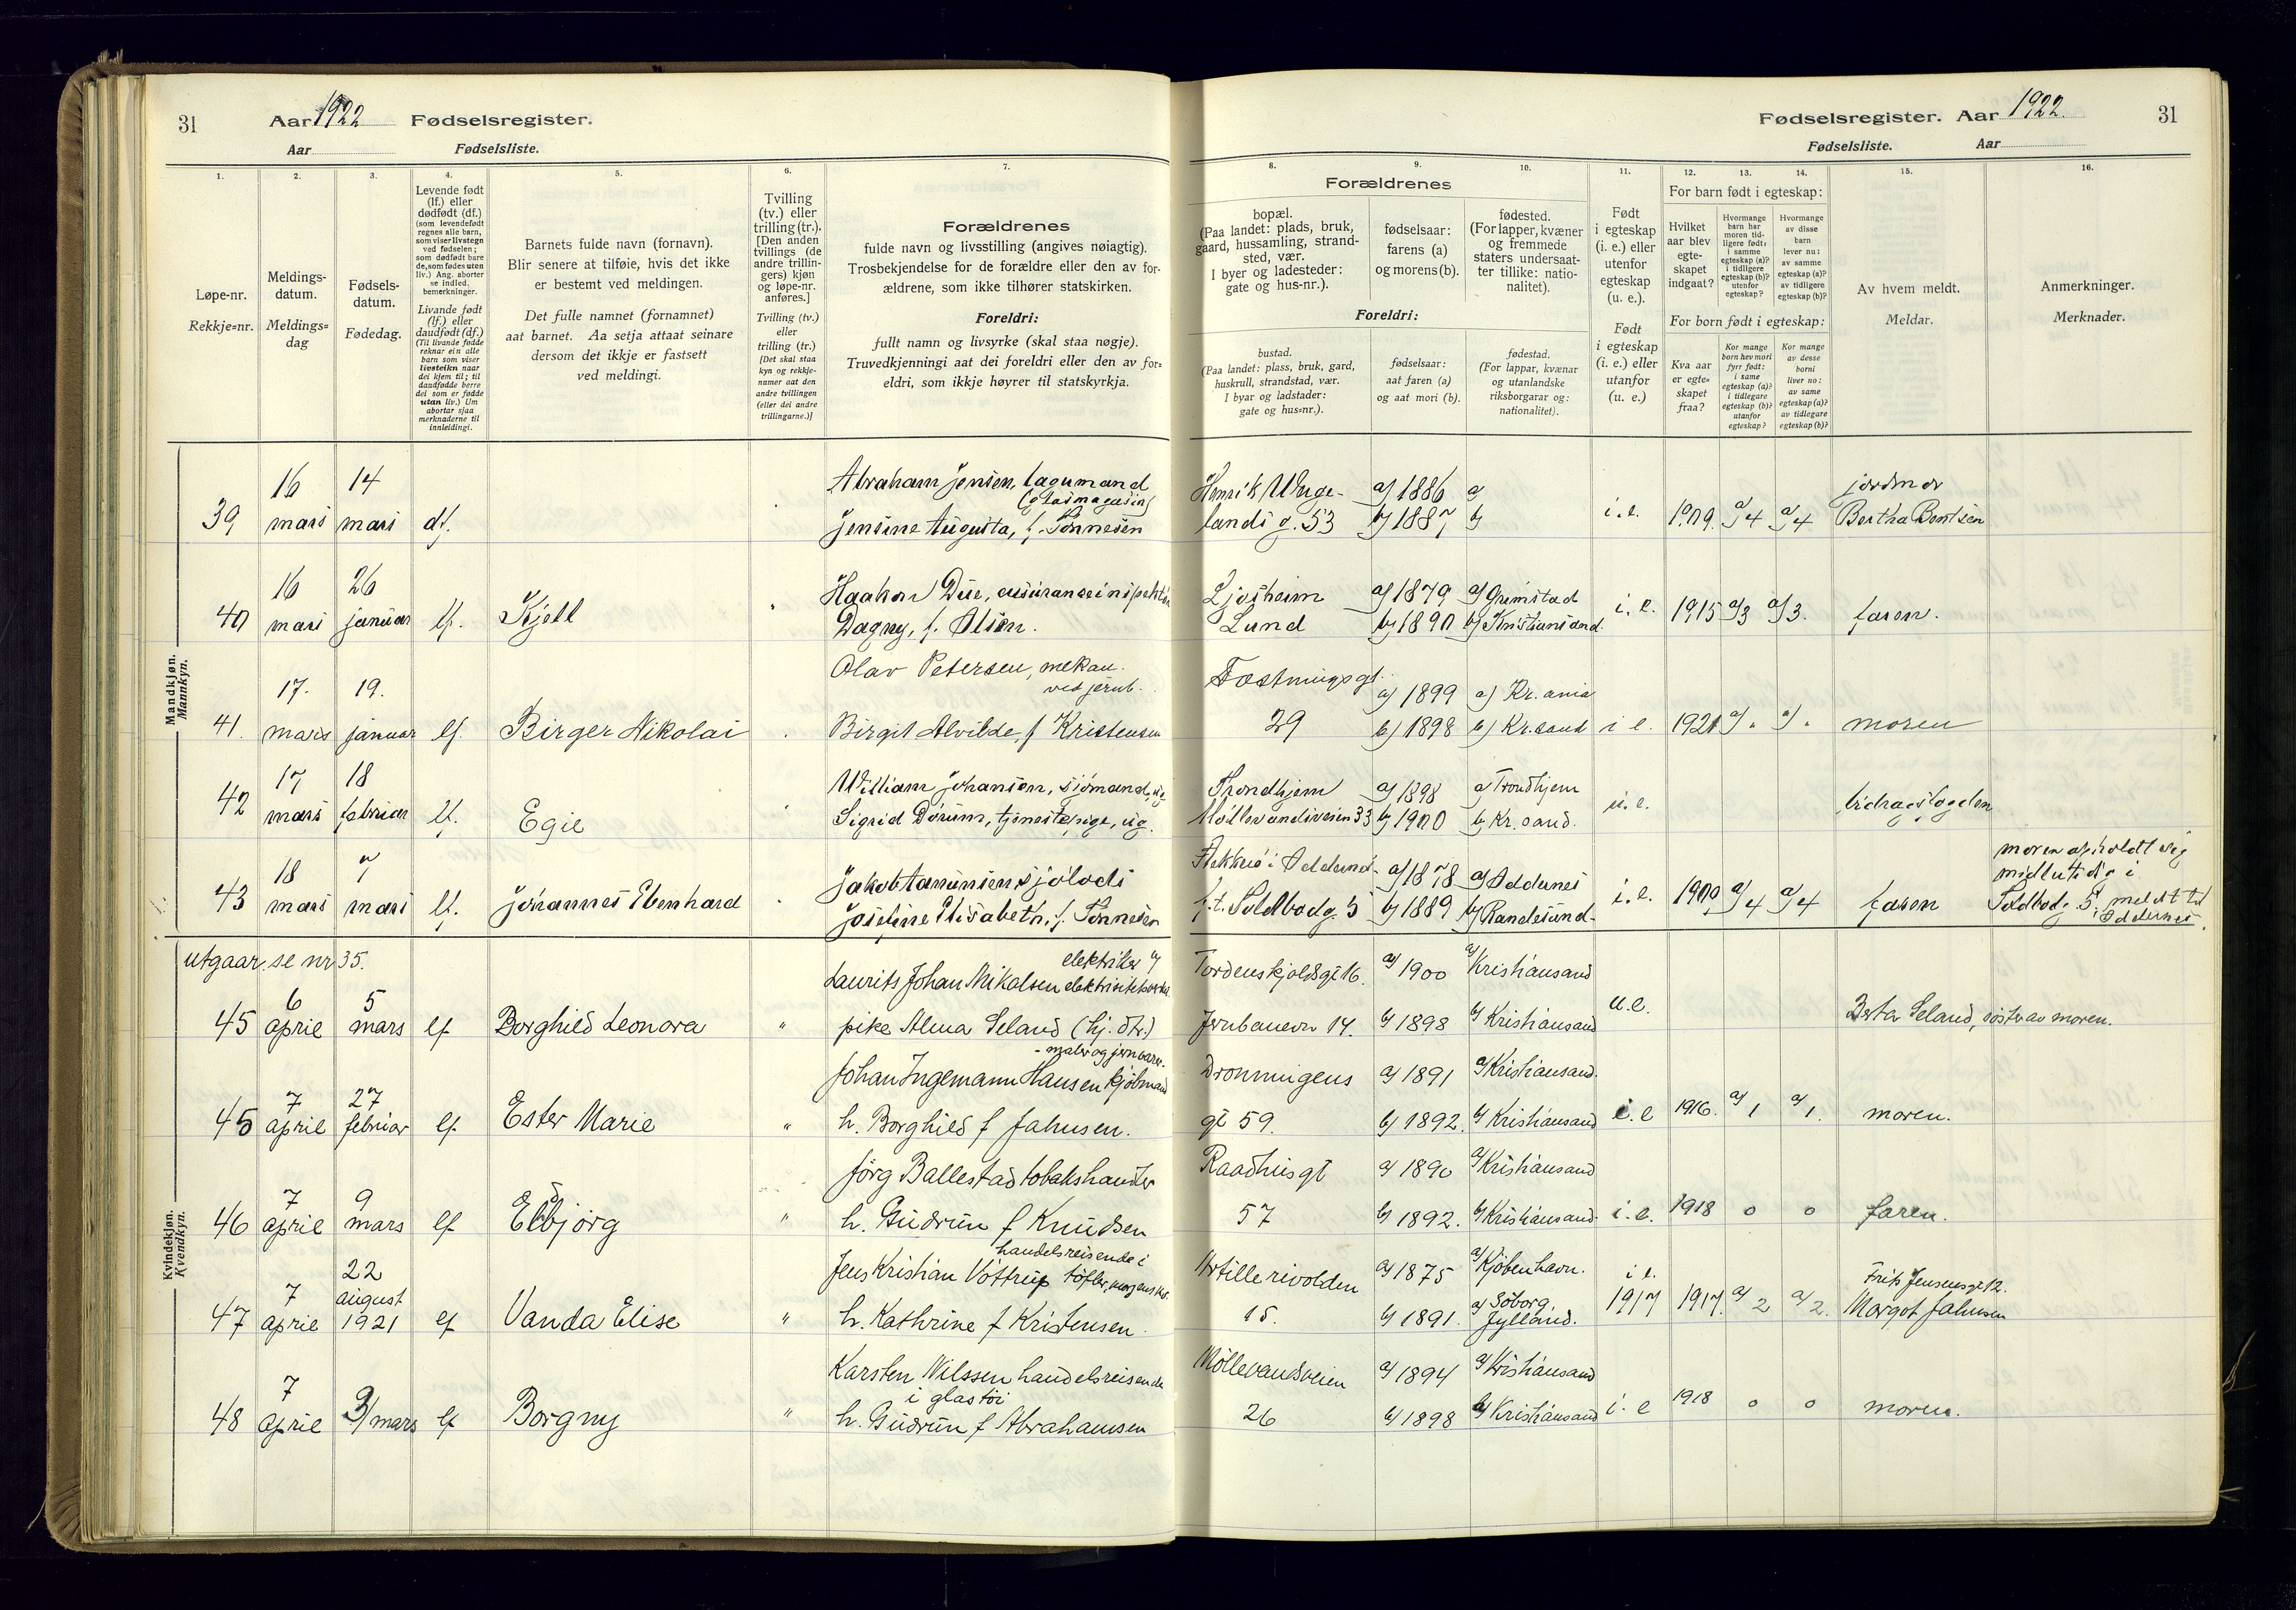 31
Aar 1922 Fødselsregister.
Aar Fødselsliste.
Fødselsregister. Aar 1922. 31
Fødselsliste. Aar
1. 2. 3. 4. 5. 6. 7.
Løpe-nr.
Rekkje-nr.
Meldings-
datum.
Meldings-
dag
Fødsels-
datum.
Fødedag.
Levende født
(lf.) eller
dødfødt (df.)
(som levendefødt
regnes alle barn,
som viser livstegn
ved fødselen;
som dødfødt bare
de, som fødes uten
liv.) Ang. aborter
se indled.
bemerkninger.
Livande født
(lf.) eller
daudfødt (df.)
(Til livande fødde
reknar ein alle
barn som viser
livsteikn naar
dei kjem til; til
daudfødde berre
dei som er fødde
utan liv.) Um
abortar sjaa
merknaderne til
innleidingi.
Barnets fulde navn (fornavn).
Blir senere at tilføie, hvis det ikke
er bestemt ved meldingen.
Det fulle namnet (fornamnet)
aat barnet. Aa setja attaat seinare
dersom det ikkje er fastsett
ved meldingi.
Tvilling
(tv.) eller
trilling (tr.).
[Den anden
tvillings (de
andre trillin-
gers) kjøn
og løpe-nr.
anføres.]
Tvilling (tv.)
eller
trilling (tr.)
[Det skal staa
kyn og rekkje-
numer aat den
andre tvillingen
(eller dei andre
trillingarne.)]
Forældrenes
fulde navn og livsstilling (angives nøiagtig).
Trosbekjendelse for de forældre eller den av for-
ældrene, som ikke tilhører statskirken.
Foreldri:
fullt namn og livsyrke (skal staa nøgje).
Truvedkjenningi aat dei foreldri eller den av for-
eldri, som ikkje høyrer til statskyrkja.
8. 9. 10. 11. 12. 13. 14. 15. 16.
Forældrenes
bopæl.
(Paa landet: plads, bruk,
gaard, hussamling, strand-
sted, vær.
I byer og ladesteder:
gate og hus-nr.).
fødselsaar:
farens (a)
og morens (b).
fødested.
(For lapper, kvæner
og fremmede
staters undersaat-
ter tillike: natio-
nalitet).
Foreldri:
bustad.
(Paa landet: plass, bruk, gard,
huskrull, strandstad, vær.
I byar og ladstader:
gate og hus-nr.).
fødselsaar:
aat faren (a)
og aat mori (b).
fødestad.
(For lappar, kvænar
og utanlandske
riksborgarar og:
nationalitet).
Født
i egteskap
(i. e.) eller
utenfor
egteskap
(u. e.).
Født
i egteskap
(i. e.) eller
utanfor
(u. e.)
For barn født i egteskap:
Hvilket
aar blev
egte-
skapet
indgaat?
Hvormange
barn har
moren tid-
ligere født:
i samme
egteskap (a)?
i tidligere
egteskap (b)?
utenfor
egteskap?
Hvormange
av disse
barn
lever nu:
av samme
egteskap (a)?
av tidligere
egteskap (b)?
For born født i egteskap:
Kva aar
er egte-
skapet
fraa?
Kor mange
born hev mori
fyrr født:
i same
egteskap (a)?
i tidlegare
egteskap (b)?
utanfor
egteskap?
Kor mange
av desse
borni
liver no:
av same
egteskap (a)?
av tidlegare
egteskap (b)?
Av hvem meldt.
Meldar.
Anmerkninger.
Merknader.
Mandkjøn.
Mannkyn.
39 16 mars 14 mars df.
Abraham Jensen, lagermand
(glasmagasin)
Jensine Augusta, f. Tønnesen
Henrik Werge-
lands g. 53
a) 1886 a)
b) 1887 b)
i. e. 1909. a) 4 a) 4
jordmor
Bertha Bentsen
40 16 mars 26 januar lf. Kjell
Haakon Due, assuranseinspektør
Dagny, f. Olsen.
Ljosheim
Lund
a) 1879 a) Grimstad
b) 1890 b) Kristiansand.
i. e. 1915 a) 3 a) 3. faren.
41. 17. mars 19. januar lf. Birger Nikolai
Olav Petersen, mekan.
ved jernb.
Birgit Alvilde, f Kristensen
Festningsgt.
29
a) 1899 a) Kr. ania
b) 1898 b) Kr.sand
i e. 1921 a) " a) " moren
42 17 mars 18 februar lf. Egil
William Johansen, sjømand, ug.
Sigrid Dørum, tjenestepige, ug.
Trondhjem
Møllevandsveien 33
a) 1898 a) Trondhjem
b) 1900 b) Kr. sand.
u. e. bidragsfogden
43 18 mars 7 mars lf. Johannes Ebenhard
Jakob Aanunsen, sjølods
Josefine Elisabeth, f. Tønnesen
Flekkerø i Oddernes
f.t. Toldbodg. 5
a) 1878 a) Oddernes
b) 1889 b) Randesund.
i. e. 1909 a) 4 a) 4 faren
moren opholdt sig
midlertidig i
Toldbodg. 5. meldt til
Oddernes.
Kvindekjøn.
Kvendkyn.
utgaar. se nr 35.
45 6 april 5 mars lf Borghild Leonora "
elektriker v
Laurits Johan Nikolsen elektricitetsverket
pike Alma Seland (hj. dtr.)
Tordenskjoldsgt 16.
Jernbanevn 14.
a) 1900 a) Kristiansand
b) 1898 b) Kristiansand
u. e. Berta Seland, søster av moren.
45 7 april 27 februar lf Ester Marie "
- maler og jernvare-
Johan Ingemann Hansen kjøbmand
h. Borghild f Jahnsen.
Dronningens
gt 59.
a) 1891 a) Kristiansand.
b) 1892. b) Kristiansand
i. e 1916. a) 1 a) 1. moren.
46 7 april 9 mars lf Ebbjørg "
Jørg Ballestad tobakshandler
h. Gudrun f Knudsen
Raadhusgt
57
a) 1890 a) Kristiansand
b) 1892. b) Kristiansand
i. e. 1918 0 0 faren.
47 7 april 22 august 1921 lf Vanda Elise "
handelsreisende i
Jens Kristian Vöttrup tøfler, morgensko.
h. Kathrine f Kristensen.
Artillerivolden
15.
a) 1875 a) Kjøbenhavn.
b) 1891. b) Søborg.
Jylland.
i e.
1917 1917. a) 2 a) 2.
Frits Jensensgt 12.
Margot Jahnsen
48 7 april 3/ mars lf Borgny "
Karsten Nilssen handelsreisende
i glastøi
h. Gudrun f Abrahamsen
Møllevandsveien
26
a) 1894 a) Kristiansand
b) 1898 b) Kristiansand
i. e 1918 0 0 moren.